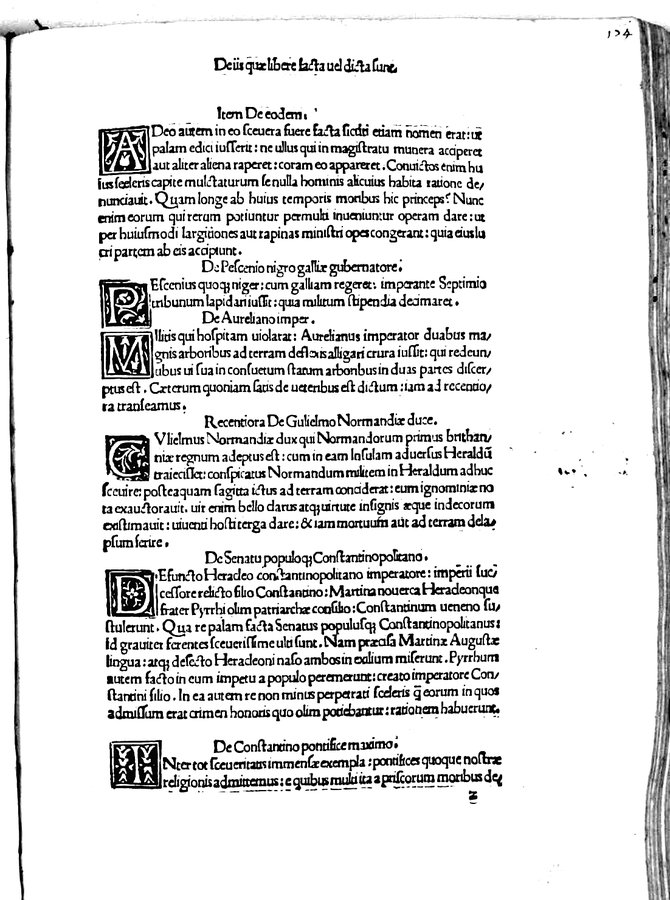 124
De iis quæ libere facta uel dicta sunt.
Item De eodem.
ADeo autem in eo sceuera fuere facta sicuti etiam nomen erat: ut
palam edici iusserit: ne ullus qui in magistratu munera acciperet
aut aliter aliena raperet: coram eo appareret. Conuictos enim hu
ius sceleris capite mulctaturum se nulla hominis alicuius habita ratione de/
nunciauit. Quam longe ab huius temporis moribus hic princeps? Nunc
enim eorum qui rerum potiuntur permulti inueniuntur operam dare: ut
per huiusmodi largitiones aut rapinas ministri opes congerant: quia eius lu
cri partem ab eis accipiunt.
De Pescenio nigro galliæ gubernatore.
PEscenius quoq; niger: cum galliam regeret: imperante Septimio
tribunum lapidari iussit: quia militum stipendia decimaret.
De Aureliano imper.
MIlitis qui hospitam uiolarat: Aurelianus imperator duabus ma/
gnis arboribus ad terram deflexis alligari crura iussit: qui redeun/
tibus ui sua in consuetum statum arboribus in duas partes discer/
ptus est. Cæterum quoniam satis de ueteribus est dictum: iam ad recentio/
ra transeamus.
Recentiora De Gulielmo Normandiæ duce.
GVlielmus Normandiæ dux qui Normandorum primus brithan/
niæ regnum adeptus est: cum in eam Insulam aduersus Heraldũ
traiecisset: conspicatus Normandum militem in Heraldum adhuc
sceuire: posteaquam sagitta ictus ad terram conciderat: eum ignominiæ no
ta exauctorauit. uir enim bello clarus atq; uirtute insignis æque indecorum
existimauit: uiuenti hosti terga dare: & iam mortuum aut ad terram dela/
psum ferire.
De Senatu populoq; Constantinopolitano.
DEfuncto Heracleo constantinopolitano imperatore: imperii suc/
cessore relicto filio Constantino: Martina nouerca Heracleonque
frater Pyrrhi olim patriarchæ consilio: Constantinum ueneno su/
stulerunt. Qua re palam facta Senatus populusq; Constantinopolitanus:
id grauiter ferentes sceuerissime ulti sunt. Nam præcisa Martinæ Augustæ
lingua: atq; desecto Heracleoni naso ambos in exilium miserunt. Pyrrhum
autem facto in eum impetu a populo peremerunt: creato imperatore Con/
stantini filio. In ea autem re non minus perpetrati sceleris q̃ eorum in quos
admissum erat crimen honoris quo olim potiebantur: rationem habuerunt.
De Constantino pontifice maximo.
INter tot sceueritatis immensæ exempla: pontifices quoque nostræ
religionis admittemus: e quibus multi ita a priscorum moribus de/